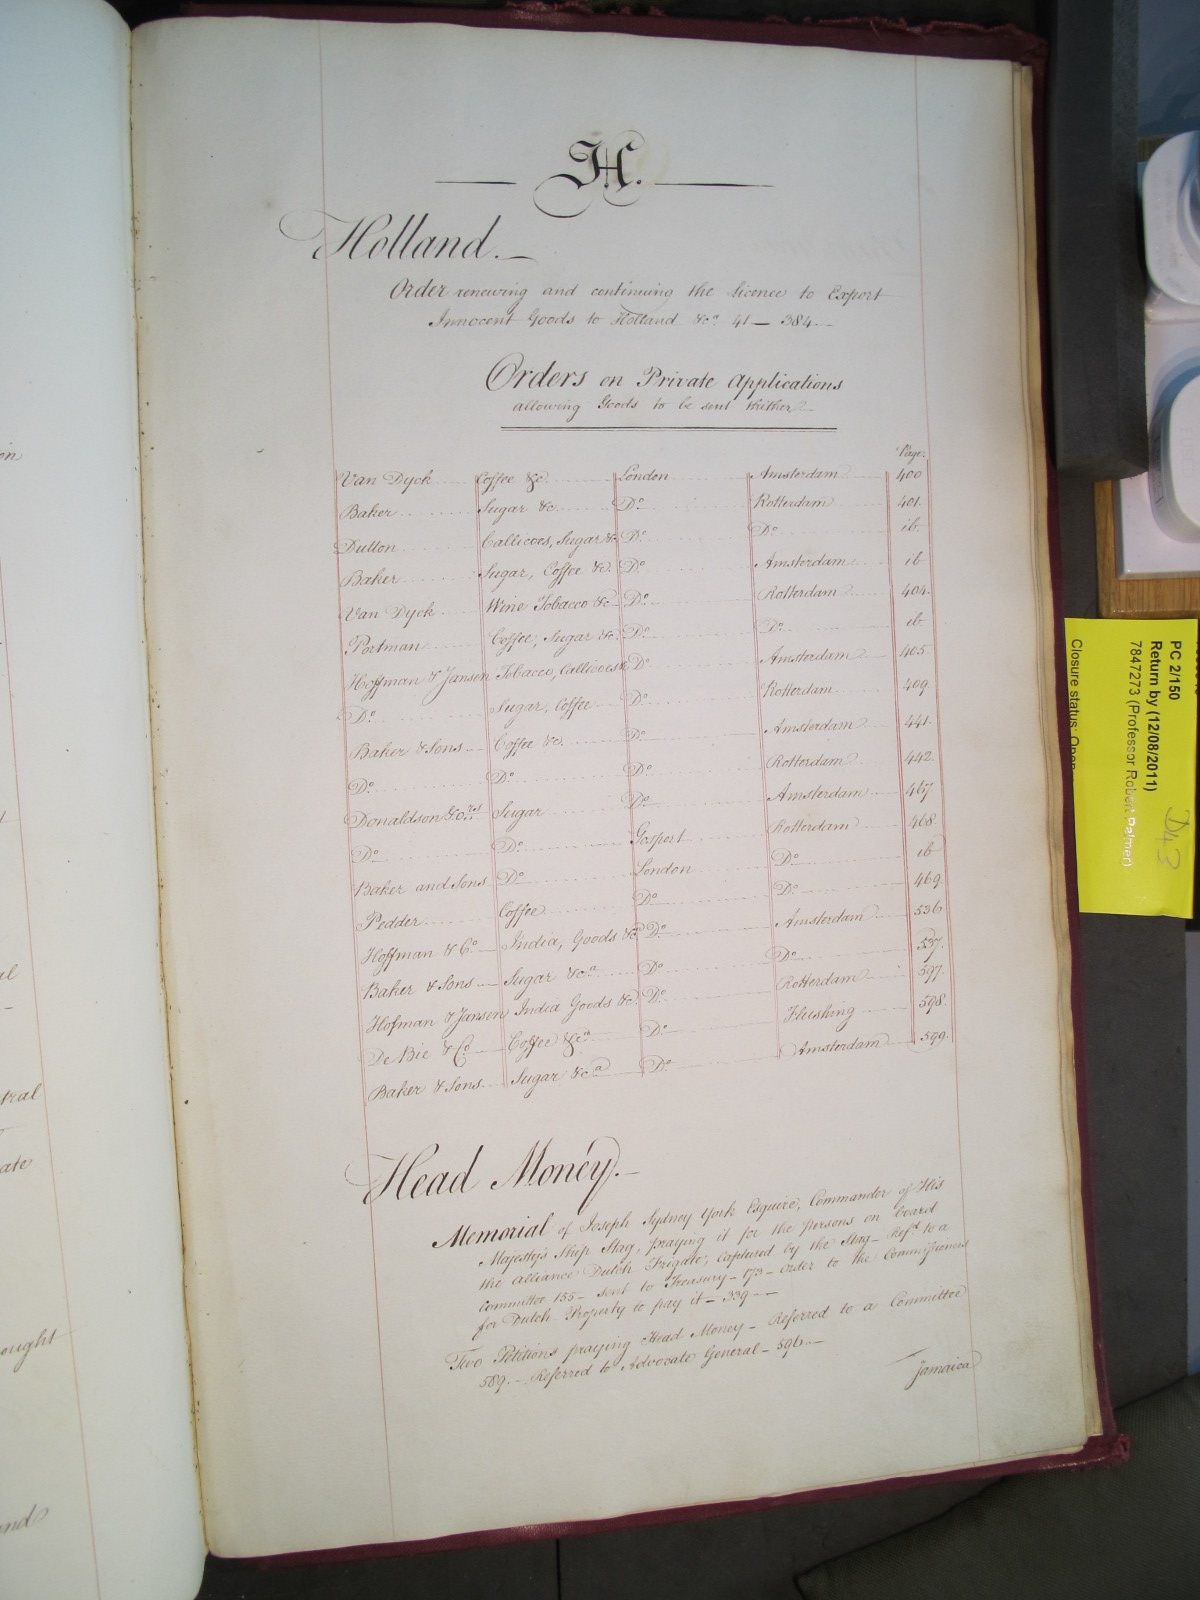 H.
Holland.
Order renewing and continuing the licence to Export
Innocent Goods to Holland &c.a 41 — 384 —
Orders on Private Applications
allowing Goods to be sent thither.
Page.
Van Dyck Coffee &c London Amsterdam 400
Baker Sugar &c Do Rotterdam 401
Dutton Callicoes, Sugar &c Do Do ib
Baker Sugar, Coffee &c. Do Amsterdam ib
Van Dyck Wine Tobacco &c Do Rotterdam 404
Portman Coffee, Sugar &c. Do Do ib
Hoffman & Jansen Tobacco, Callicoes &c Do Amsterdam 405
Do Sugar, Coffee Do Rotterdam 409
Baker & Sons Coffee &c. Do Amsterdam 441
Do Do Do Rotterdam 442
Donaldson &Co. Sugar Do Amsterdam 467
Do Do Gosport Rotterdam 468
Baker and Sons Do London Do ib
Pedder Coffee Do Do 469
Hoffman & Co India, Goods &c Do Amsterdam 536
Baker & Sons Sugar &c.a Do Do 537
Hofman & Jansen India Goods &c. Do Rotterdam 597
De Bie & Co Coffee &c.a Do Flushing 598
Baker & Sons Sugar &c.a Do Amsterdam 599
Head Money.
Memorial of Joseph Sydney York Esquire, Commander of His
Majesty's Ship Stag, praying it for the persons on board
the alliance Dutch Frigate, captured by the Stag — Refd to a
Committee 155 — sent to Treasury — 173 — order to the Commissioners
for Dutch Property to pay it — 339 —
Two Petitions praying Head Money — Referred to a Committee
589. — Referred to Advocate General — 596 —
Jamaica
PC 2/150
Return by (12/08/2011)
7847273 (Professor Robert Palmer)
Closure status: Open
D43